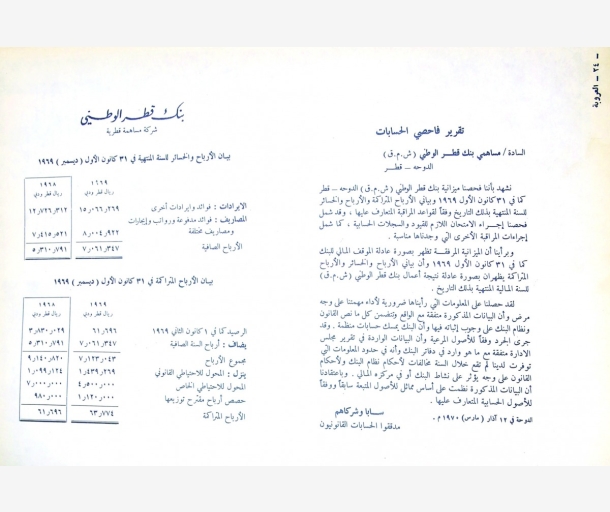 ٢٤ - العروبة
تقرير فاحصي الحسابات
السادة / مساهمي بنك قطر الوطني (ش.م.ق)
الدوحه - قطر
نشهد بأننا فحصنا ميزانية بنك قطر الوطني (ش.م.ق) الدوحه - قطر
كما في ٣١ كانون الأول ١٩٦٩ وبياني الأرباح المتراكمة والأرباح والخسائر
للسنة المنتهية بذلك التاريخ وفقاً لقواعد المراقبة المتعارف عليها ، وقد شمل
فحصنا إجراء الامتحان اللازم للقيود والسجلات الحسابية ، كما شمل
إجراءات المراقبة الأخرى التي وجدناها مناسبة .
وبرأينا أن الميزانية المرفقة تظهر بصورة عادلة الموقف المالي للبنك
كما في ٣١ كانون الأول ١٩٦٩ وأن بياني الأرباح والخسائر والأرباح
المتراكمة يظهران بصورة عادلة نتيجة أعمال بنك قطر الوطني (ش.م.ق)
للسنة المالية المنتهية بذلك التاريخ .
لقد حصلنا على المعلومات التي رأيناها ضرورية لأداء مهمتنا على وجه
مرض وأن البيانات المذكورة متفقة مع الواقع وتتضمن كل ما نص القانون
ونظام البنك على وجوب إثباته فيها وأن البنك يمسك حسابات منظمة . وقد
جرى الجرد وفقاً للأصول المرعية وأن البيانات الواردة في تقرير مجلس
الادارة متفقة مع ما هو وارد في دفاتر البنك وأنه في حدود المعلومات التي
توفرت لدينا لم تقع خلال السنة مخالفات لأحكام نظام البنك ولأحكام
القانون على وجه يؤثر على نشاط البنك أو في مركزه المالي . وباعتقادنا
أن البيانات المذكورة نظمت على أساس مماثل للأصول المتبعة سابقاً ووفقاً
للأصول الحسابية المتعارف عليها .
سابا وشركاهم
مدققوا الحسابات القانونيون
الدوحة في ١٢ آذار (مارس) ١٩٧٠ م .
بنك قطر الوطني
شركة مساهمة قطرية
بيان الأرباح والخسائر للسنة المنتهية في ٣١ كانون الأول ( ديسمبر ) ١٩٦٩
١٩٦٩ ١٩٦٨
ريال قطر ودبي ريال قطر ودبي
الايرادات : فوائد وايرادات أخرى ١٥٫٠٦٦٫٢٦٩ ١٢٫٧٢٦٫٣١٢
المصاريف : فوائد مدفوعة ورواتب وإيجارات
ومصاريف مختلفة ٨٫٠٠٤٫٩٢٢ ٧٫٤١٥٫٥٢١
الأرباح الصافية ٧٫٠٦١٫٣٤٧ ٥٫٣١٠٫٧٩١
بيان الأرباح المتراكمة في ٣١ كانون الأول ( ديسمبر ) ١٩٦٩
١٩٦٩ ١٩٦٨
ريال قطر ودبي ريال قطر ودبي
الرصيد كما في ١ كانون الثاني ١٩٦٩ ٦١٫٦٩٦ ٣٫٨٣٠٫٠٢٩
يضاف : أرباح السنة الصافية ٧٫٠٦١٫٣٤٧ ٥٫٣١٠٫٧٩١
مجموع الأرباح ٧٫١٢٣٫٠٤٣ ٩٫١٤٠٫٨٢٠
ينزل : المحول للاحتياطي القانوني ١٫٤٣٩٫٢٦٩ ١٫٠٩٩٫١٢٤
المحول للاحتياطي الخاص ٤٫٥٠٠٫٠٠٠ ٧٫٠٠٠٫٠٠٠
حصص أرباح مقترح توزيعها ١٫١٢٠٫٠٠٠ ٩٨٠٫٠٠٠
الأرباح المتراكمة ٦٣٫٧٧٤ ٦١٫٦٩٦